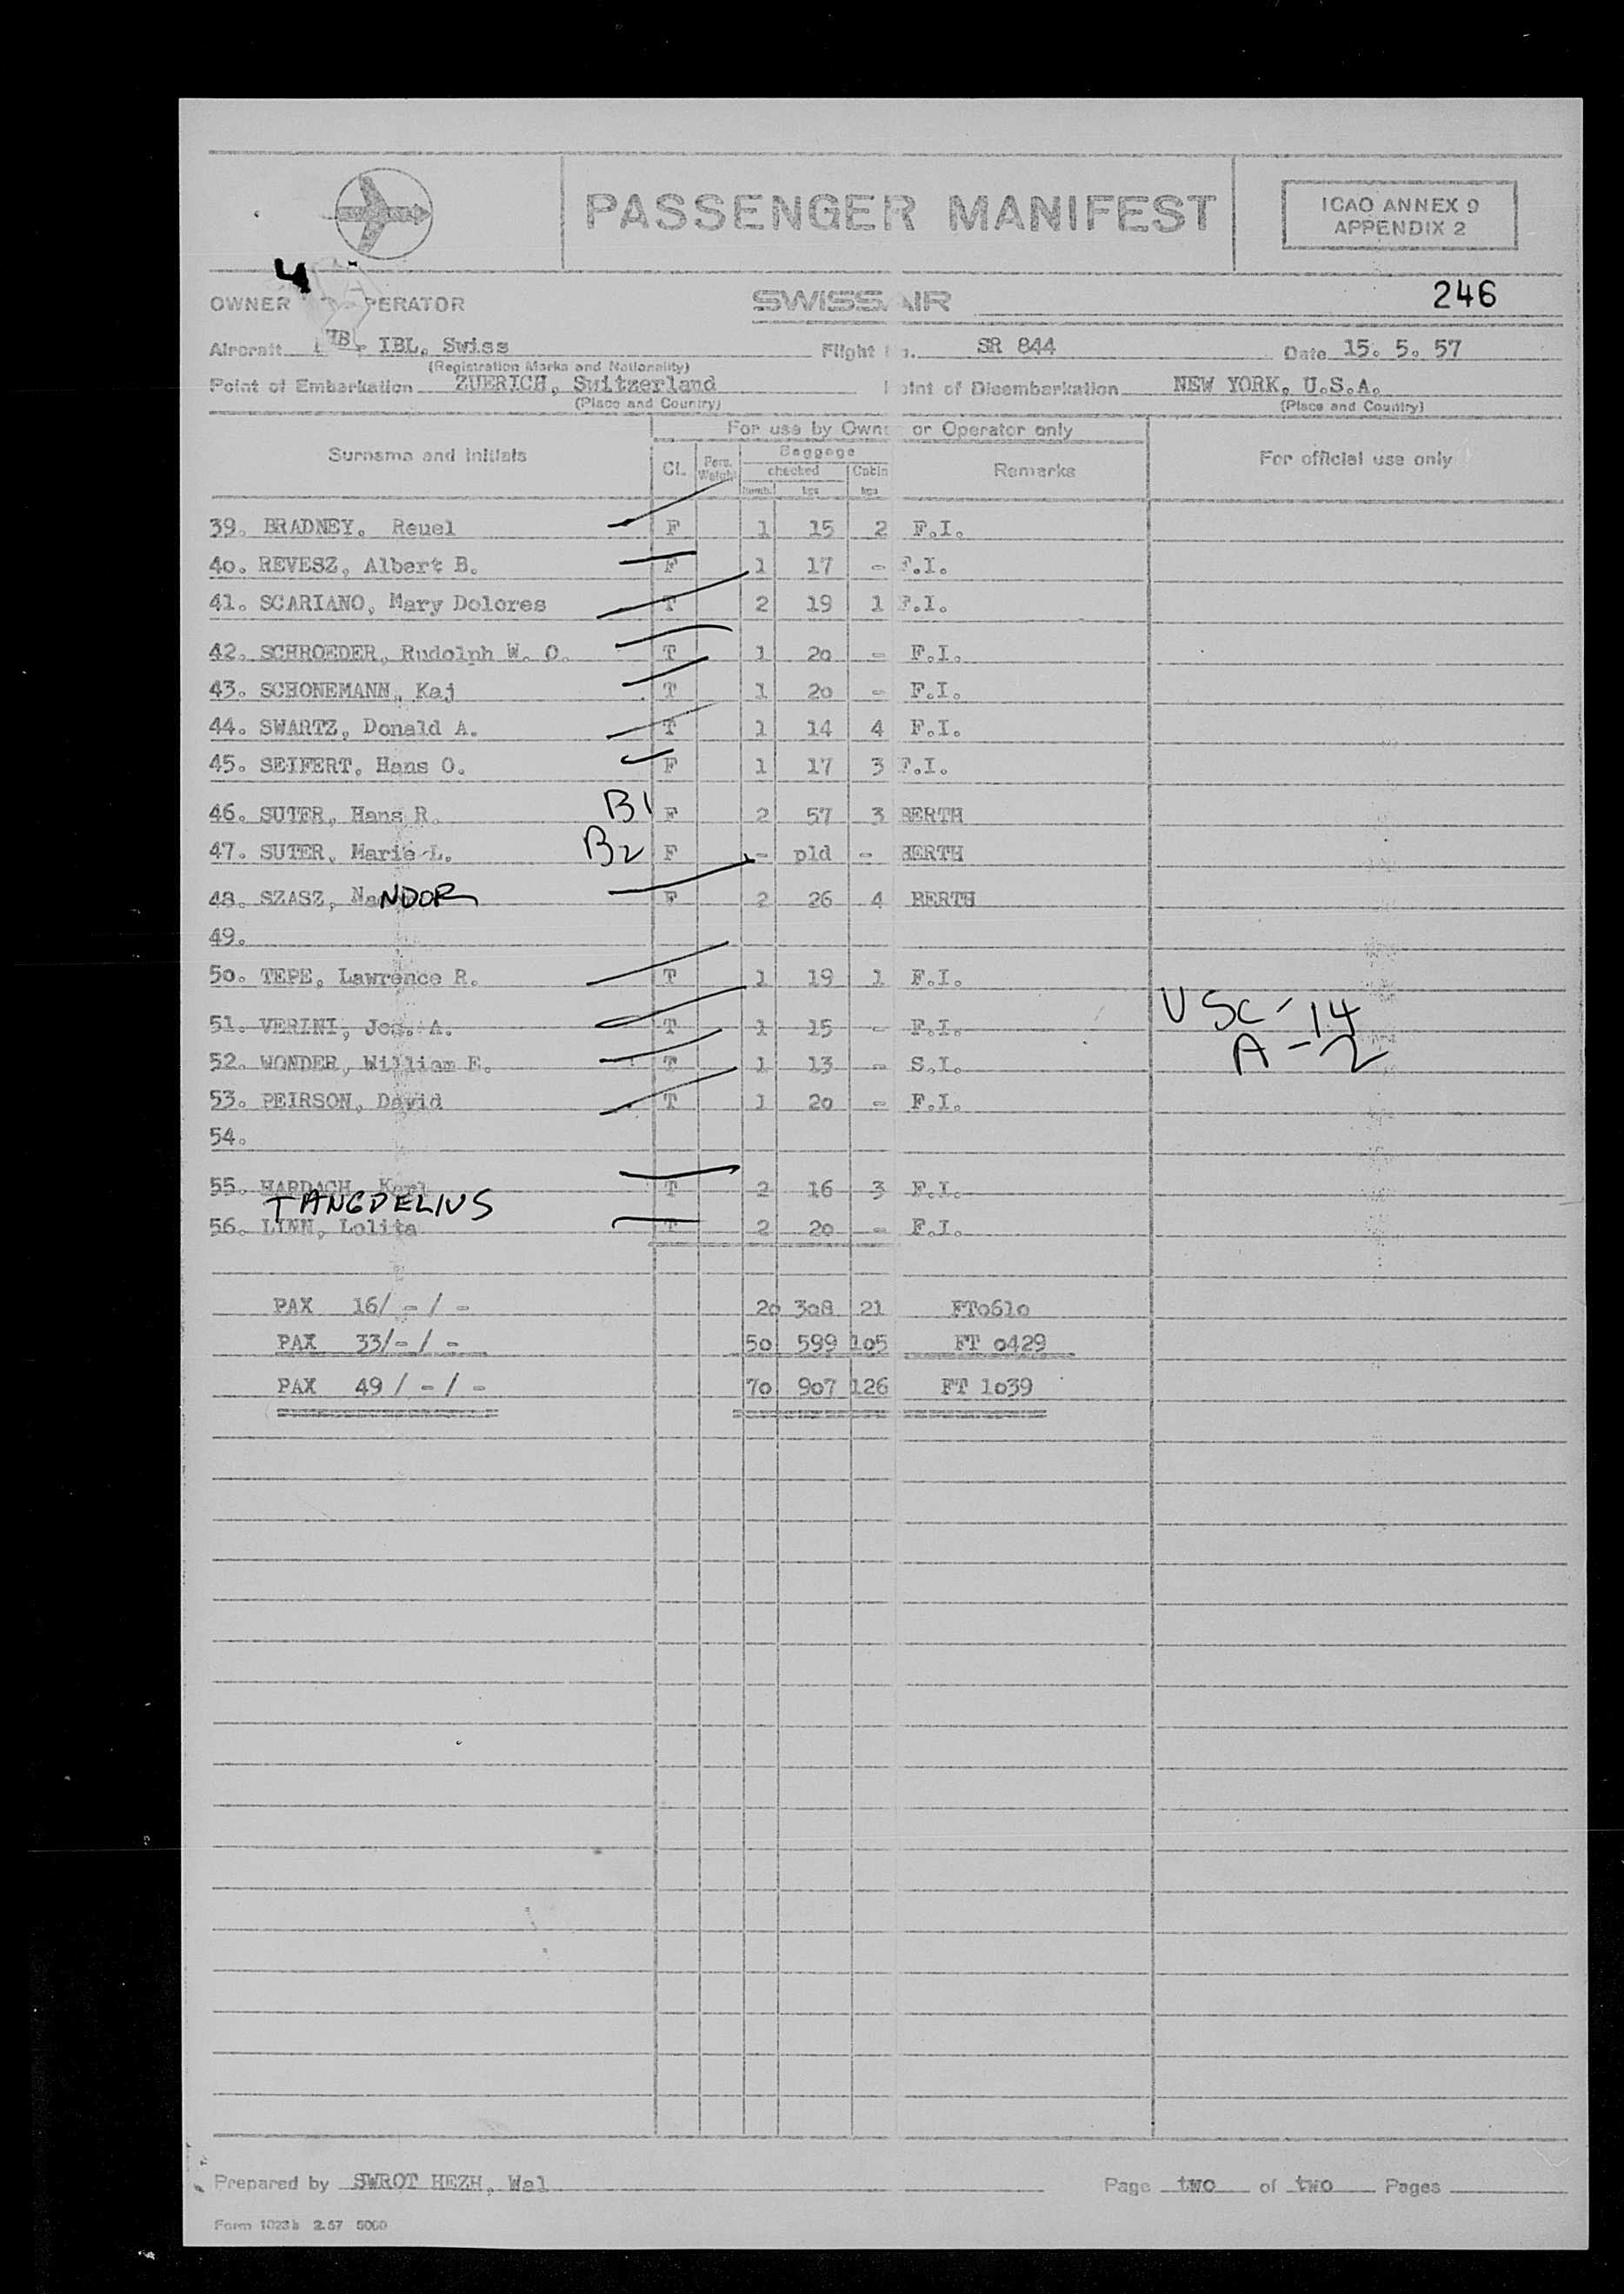 PASSENGER MANIFEST
ICAO ANNEX 9
APPENDIX 2
4
OWNER OPERATOR SWISSAIR 246
Aircraft HB - IBL, Swiss Flight No. SR 844 Date 15. 5. 57
(Registration Marks and Nationality)
Point of Embarkation ZUERICH, Switzerland Point of Disembarkation NEW YORK, U.S.A.
(Place and Country) (Place and Country)
For use by Owner or Operator only
Surname and initials Cl. Pers. Weight Baggage Remarks For official use only
checked Cabin
numb. kgs kgs
39. BRADNEY, Reuel F 1 15 2 F.I.
40. REVESZ, Albert B. F 1 17 - F.I.
41. SCARIANO, Mary Dolores T 2 19 1 F.I.
42. SCHROEDER, Rudolph W. O. T 1 20 - F.I.
43. SCHONEMANN, Kaj T 1 20 - F.I.
44. SWARTZ, Donald A. T 1 14 4 F.I.
45. SEIFERT, Hans O. F 1 17 3 F.I.
46. SUTER, Hans R. B1 F 2 57 3 BERTH
47. SUTER, Marie L. B2 F - pld - BERTH
48. SZASZ, NaNDOR F 2 26 4 BERTH
49.
50. TEPE, Lawrence R. T 1 19 1 F.I.
51. VERINI, Jos. A. T 1 15 - F.I. USC-14
52. WONDER, William E. T 1 13 - S.I. A-2
53. PEIRSON, David T 1 20 - F.I.
54.
55. HARDACH, Karl T 2 16 3 F.I.
TANGDELIUS
56. LINN, Lolita T 2 20 - F.I.
PAX 16/ - / - 20 308 21 FT0610
PAX 33/- / - 50 599 105 FT 0429
PAX 49 / - / - 70 907 126 FT 1039
Prepared by SWROT HEZH, Wal Page two of two Pages
Form 1023b 2.57 5000